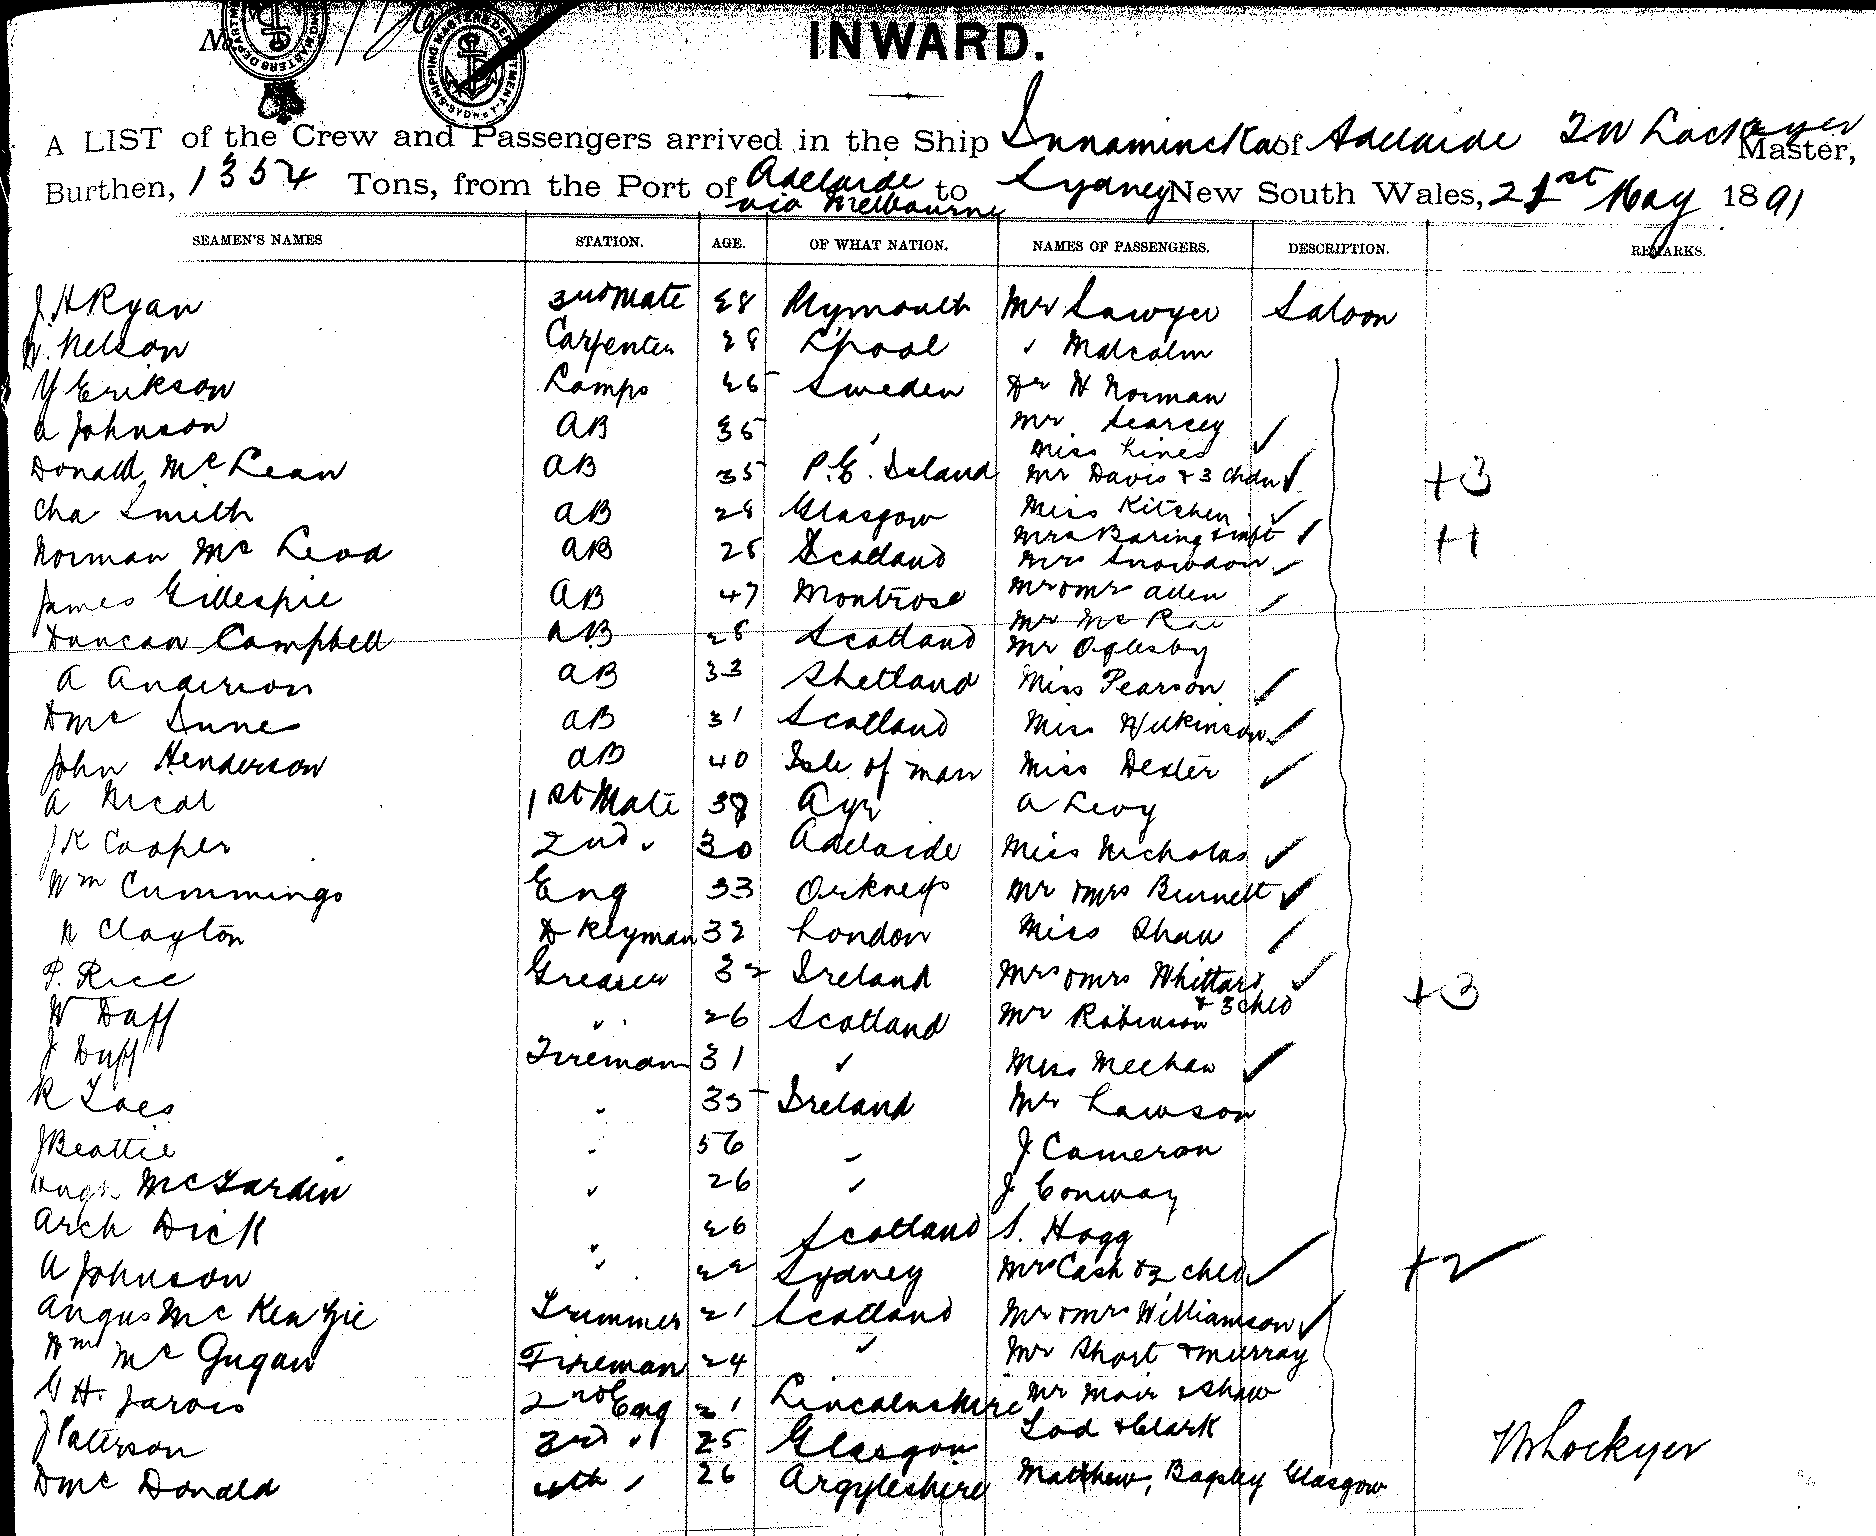 INWARD.
A LIST of the Crew and Passengers arrived in the Ship Innamincka of Adelaide W Lockyer Master,
Burthen, 1354 Tons, from the Port of Adelaide via Melbourne to Sydney New South Wales, 21st May 1891
SEAMEN'S NAMES STATION. AGE. OF WHAT NATION. NAMES OF PASSENGERS. DESCRIPTION. REMARKS.
J. H Ryan 3rd Mate 28 Plymouth Mr Sawyer Saloon
Nelson Carpenter 28 L'pool " Malcolm
Y Erikson Lamps 26 Sweden Dr H Norman
A Johnson AB 35 " Mr Searcy
Miss Lines
Donald McLean AB 35 P.E. Island Mr Davis & 3 chdn +3
Cha Smith AB 28 Glasgow Miss Kitchen
Norman McLeod AB 28 Scotland Mrs Baring & inft +1
Mrs Snowdon
James Gillespie AB 47 Montrose Mr & Mrs Allen
Mr McRae
Duncan Campbell AB 28 Scotland Mr Oglesby
A Anderson AB 33 Shetland Miss Pearson
D Mc Innes AB 31 Scotland Miss Wilkinson
John Henderson AB 40 Isle of Man Miss Dexter
A Nicol 1st Mate 38 Ayr A Levy
J R Cooper 2nd " 30 Adelaide Miss Nicholas
Wm Cummings Eng 33 Orkneys Mr & Mrs Burnett
Clayton D Keyman 32 London Miss Shaw
P. Rice Greaser 32 Ireland Mr & Mrs Whittard & 3 chld +3
W Duff " 26 Scotland Mr Robinson
J Duff Fireman 31 " Miss Meehan
R " 35 Ireland Mr Lawson
J Beattie " 56 " J Cameron
Hugh " 26 " J Conway
Arch Dick " 26 Scotland S. Hogg
A Johnson " 22 Sydney Mrs Cash & 2 chld +2
Angus McKenzie Trimmer 21 Scotland Mr & Mrs Williamson
Wm McGugan Fireman 24 " Mr Short & Murray
G H. Jarvis 2nd Eng 21 Lincolnshire Mr Moir & Shaw
J Paterson 3rd " 25 Glasgow Tod & Clark
D Mc Donald 4th " 26 Argyleshire Matthew, Bagsley Glasgow
W Lockyer